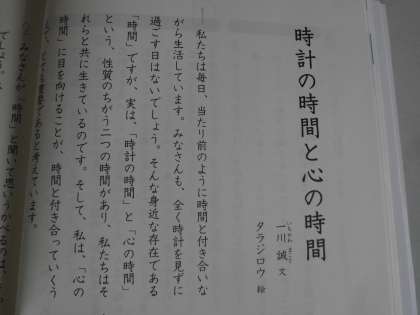 時計の時間と心の時間
一川誠 文
いちかわ まこと
タラジロウ 絵
私たちは毎日、当たり前のように時間と付き合いな
がら生活しています。みなさんも、全く時計を見ずに
過ごす日はないでしょう。そんな身近な存在である
「時間」ですが、実は、「時計の時間」と「心の時間」
という、性質のちがう二つの時間があり、私たちはそ
れらと共に生きているのです。そして、私は、「心の
時間」に目を向けることが、時間と付き合っていくう
であると考えています。
みなさんが「時間」と聞いて思いうかべるのは、